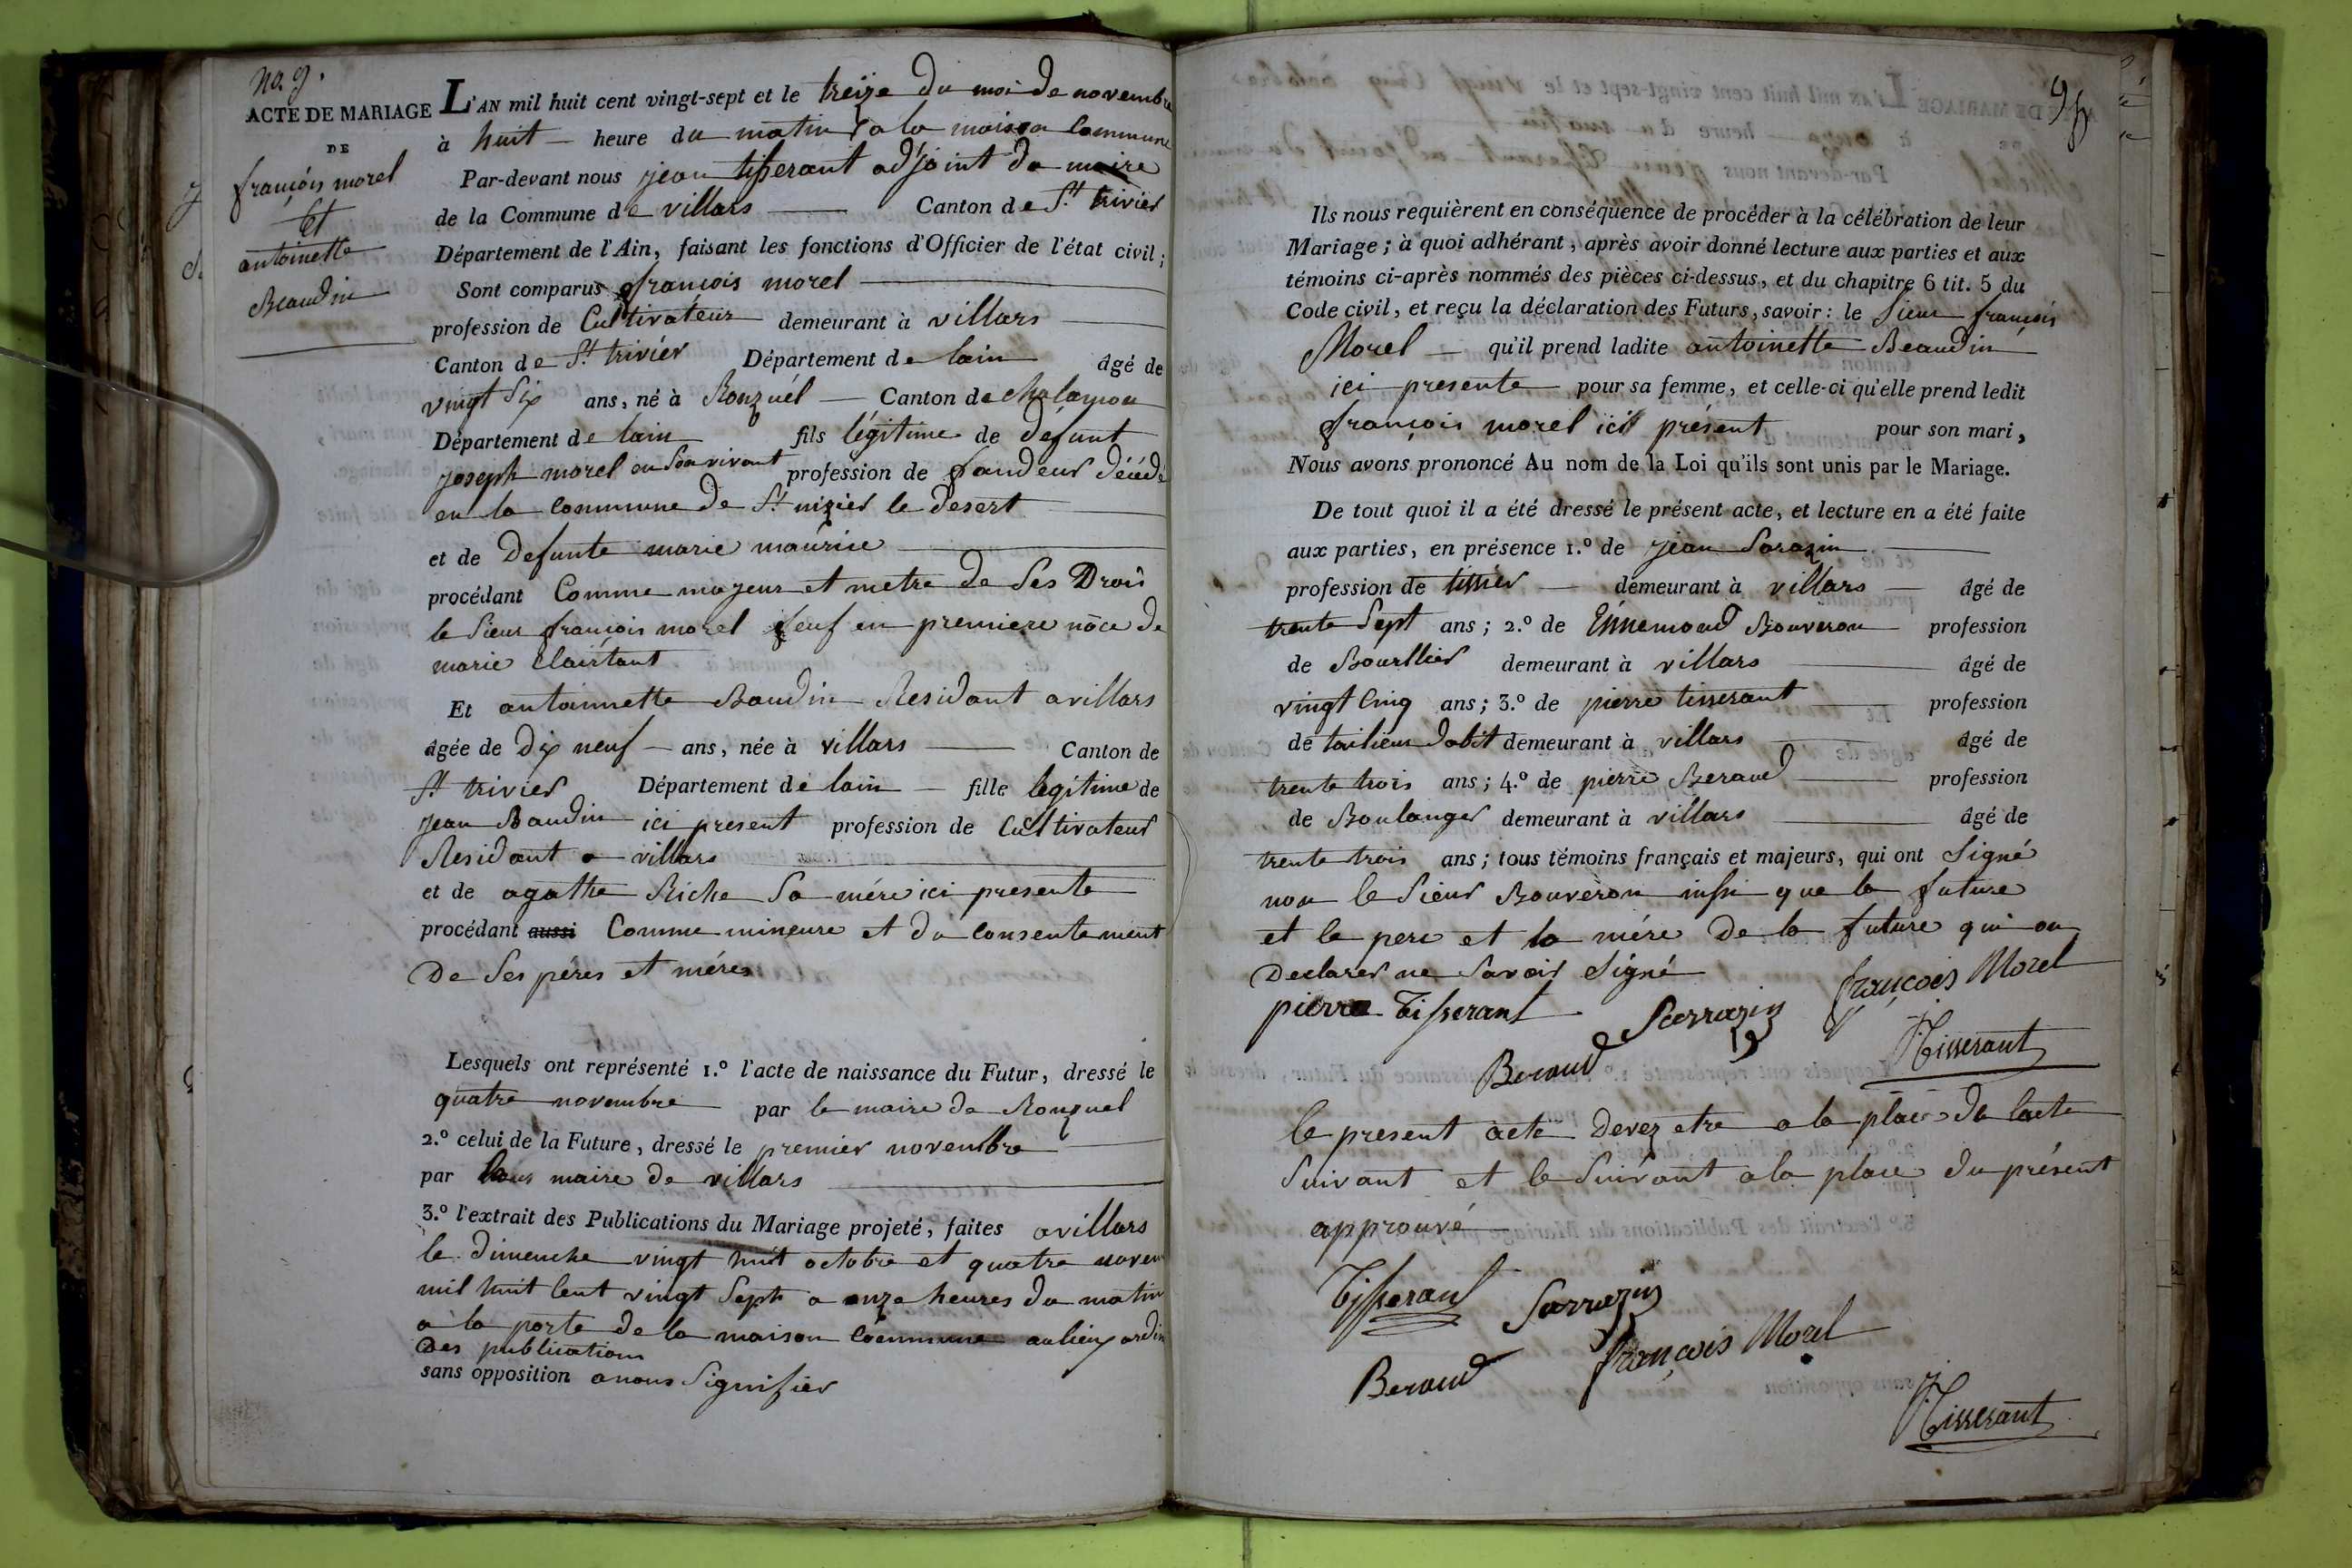 no. 9.
ACTE DE MARIAGE
DE
françois morel
Et
antoinette
Beaudin
L'AN mil huit cent vingt-sept et le treize du moi de novembre
à huit heure du matin a la maison Commune
Par-devant nous jean tisserant adjoint du maire
de la Commune de villars Canton de St. trivier
Département de l'Ain, faisant les fonctions d'Officier de l'état civil;
Sont comparus françois morel
profession de Cultivateur demeurant à villars
Canton de St. trivier Département de lain âgé de
vingt Six ans, né à Ronzuél Canton de chalamon
Département de lain fils légitime de defunt
joseph morel en Son vivant profession de faudeur décédé
en la commune de St. nizier le desert
et de Defunte marie maurice
procédant Comme majeur et metre de Ses Drois
le Sieur françois morel feuf en premiere nôce de
marie Clairtant
Et antoinnette Baudin Residant a villars
âgée de Dix neuf ans, née à villars Canton de
St. trivier Département de lain fille legitime de
jean Baudin ici present profession de Cultivateur
Residant a villars
et de agathe Riche Sa mére ici presente
procédant aussi Comme mineure et du consentement
De Ses péres et méres
Lesquels ont représenté 1.º l'acte de naissance du Futur, dressé le
quatre novembre par le maire de Ronzuel
2.º celui de la Future, dressé le premier novembre
par maire de villars
3.º l'extrait des Publications du Mariage projeté, faites a villars
le dimenche vingt huit octobre et quatre novem
mil huit Cent vingt Sept a onze heures du matin
a la porte de la maison Commune au lieux ordin
Des publications
sans opposition a nous Signifier
95
Ils nous requièrent en conséquence de procéder à la célébration de leur
Mariage; à quoi adhérant, après avoir donné lecture aux parties et aux
témoins ci-après nommés des pièces ci-dessus, et du chapitre 6 tit. 5 du
Code civil, et reçu la déclaration des Futurs, savoir: le Sieur françois
Morel qu'il prend ladite antoinette Beaudin
ici presente pour sa femme, et celle-ci qu'elle prend ledit
françois morel ici présent pour son mari,
Nous avons prononcé Au nom de la Loi qu'ils sont unis par le Mariage.
De tout quoi il a été dressé le présent acte, et lecture en a été faite
aux parties, en présence 1.º de jean Sarazin
profession de tissier demeurant à villars âgé de
trente Sept ans; 2.º de Ennemond Bouveron profession
de Bourllier demeurant à villars âgé de
vingt Cinq ans; 3.º de pierre tisserant profession
de tailieur dabit demeurant à villars âgé de
trente trois ans; 4.º de pierre Beraud profession
de Boulanger demeurant à villars âgé de
trente trois ans; tous témoins français et majeurs, qui ont Signé
non le Sieur Bouveron inssi que la future
et le pere et la mére De la future qui on
Declarer ne Savoir Signé
pierre Tisserant Sarrazin françois Morel
Beraud JTisserant
le present acte Devez etre a la place de lacte
Suivant et le Suivant a la place du présent
approuvé
Tisserant Sarrazin
Beraud françois Morel
JTisserant